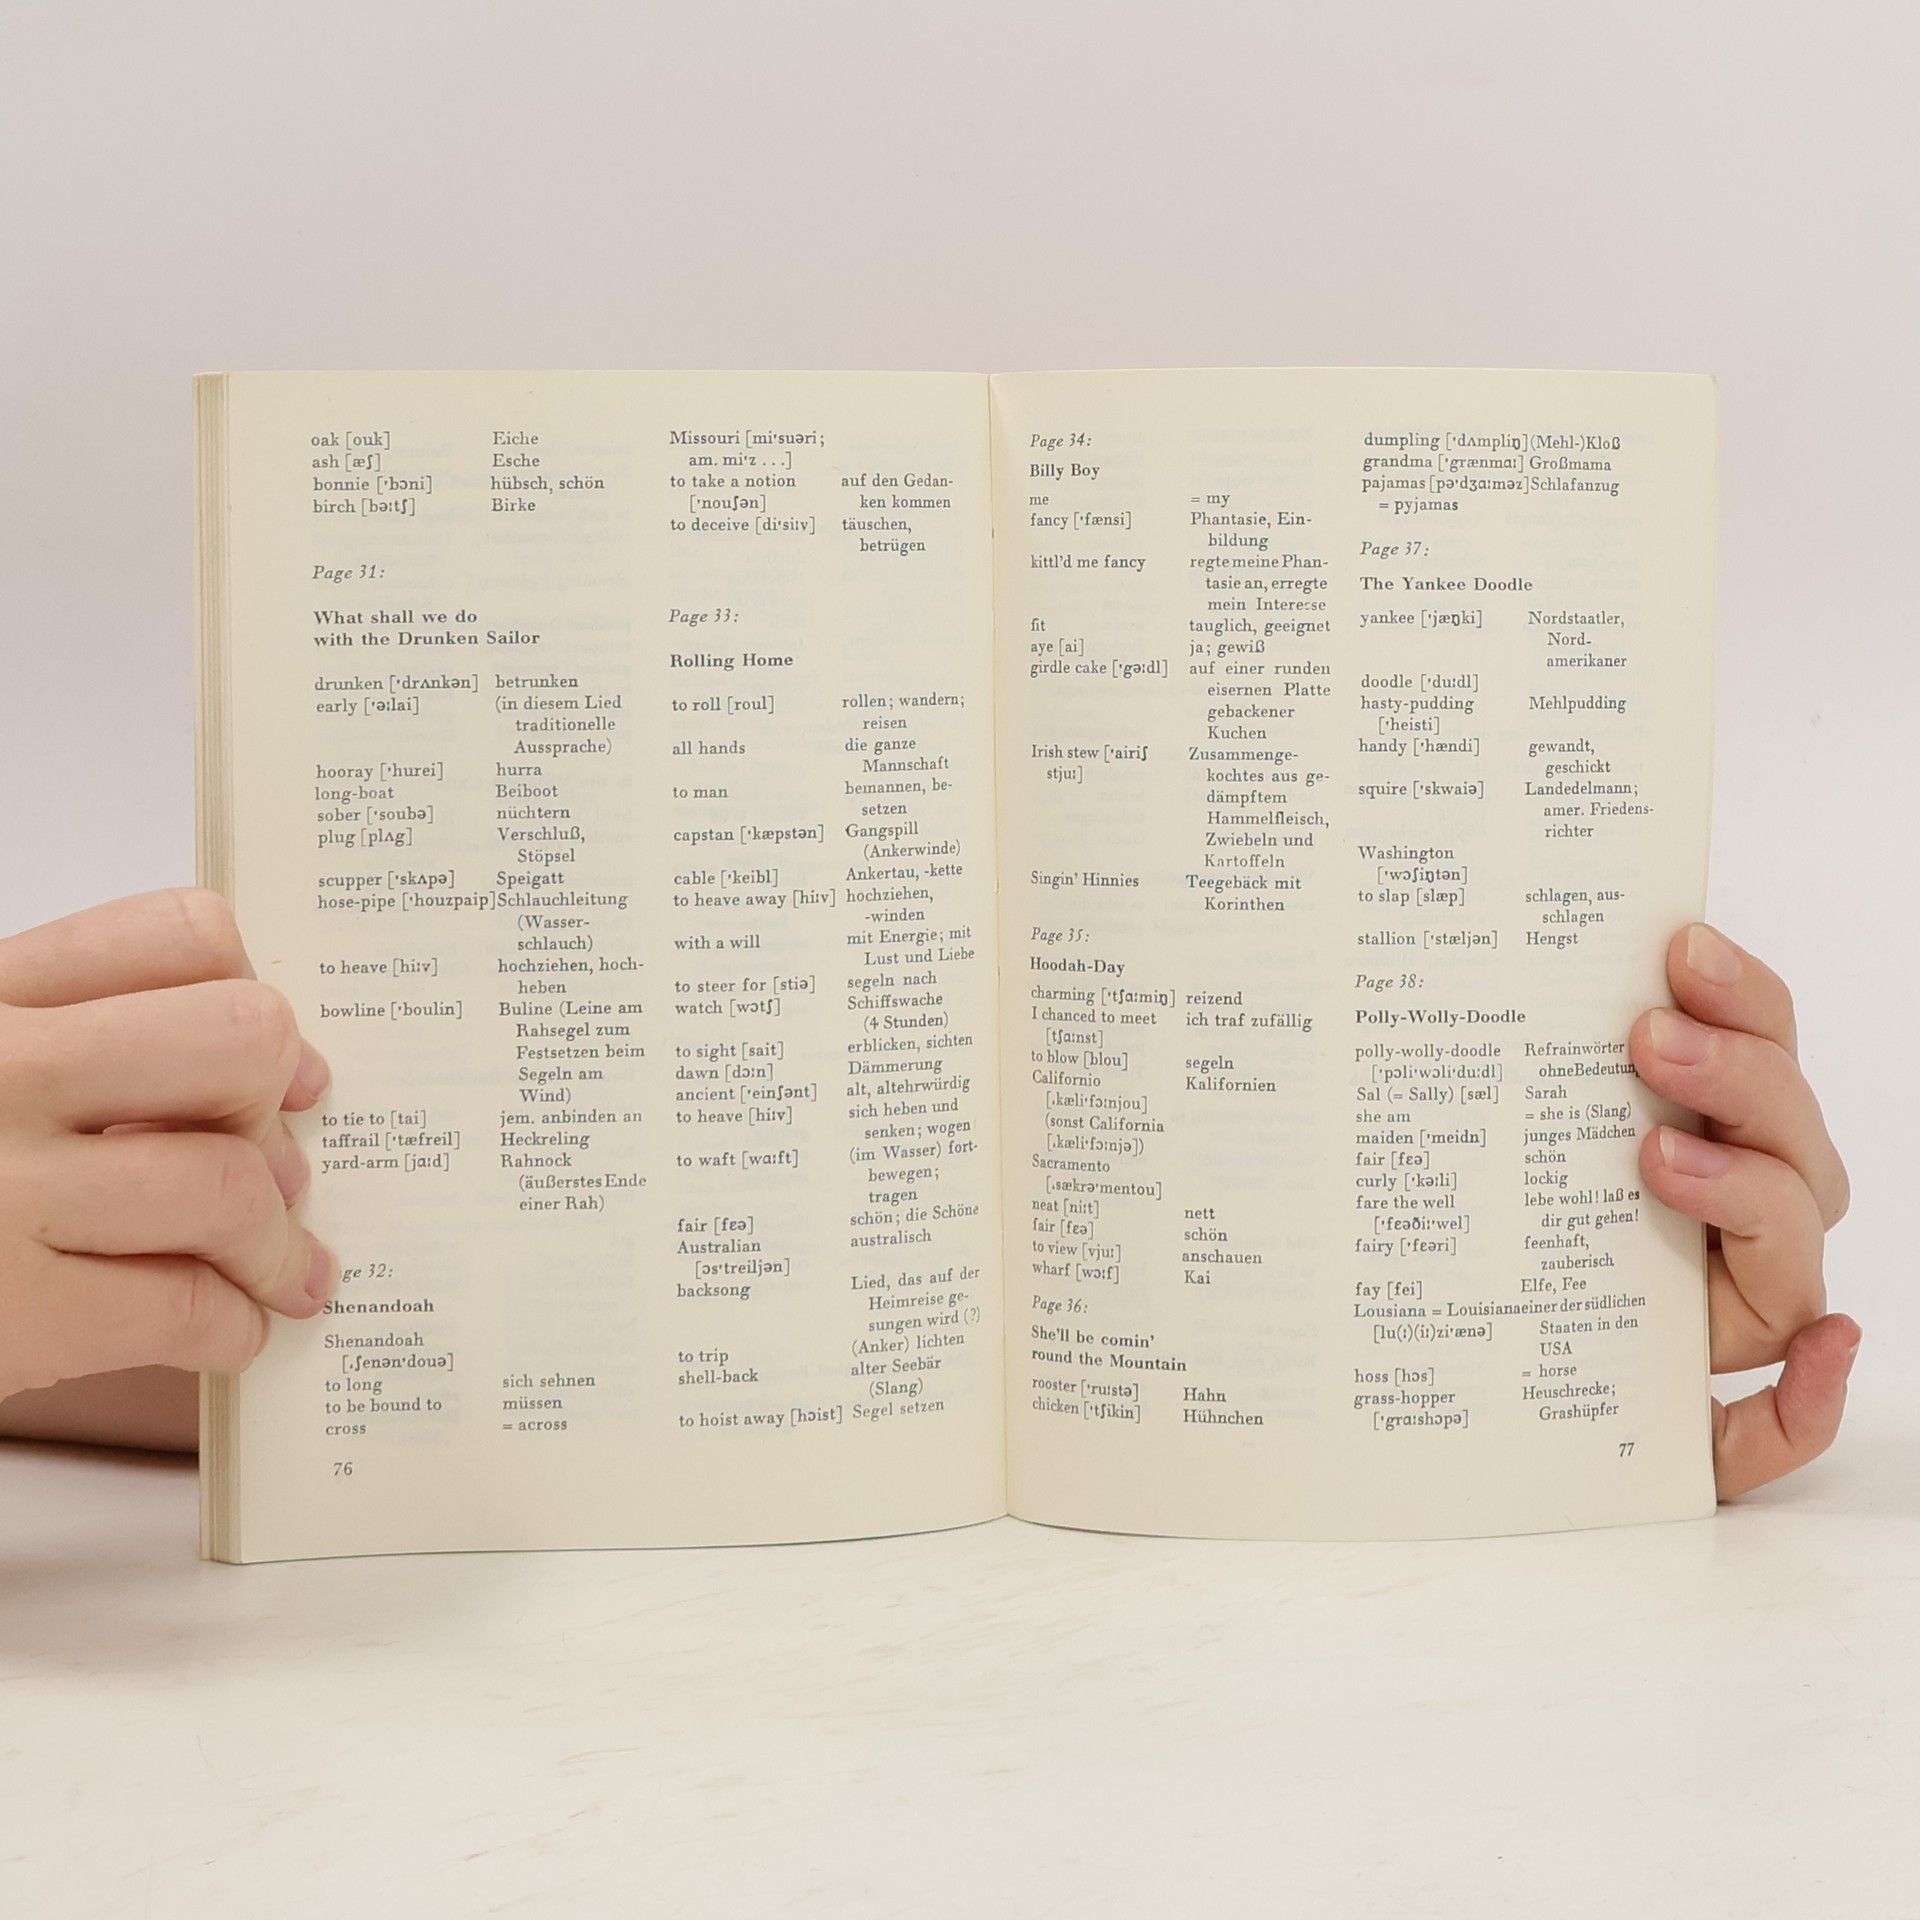 oak [ouk] Eiche
ash [æʃ] Esche
bonnie [ˈbɔni] hübsch, schön
birch [bəːtʃ] Birke
Page 31:
What shall we do
with the Drunken Sailor
drunken [ˈdrʌnkən] betrunken
early [ˈəːlai] (in diesem Lied
traditionelle
Aussprache)
hooray [ˈhurei] hurra
long-boat Beiboot
sober [ˈsoubə] nüchtern
plug [plʌg] Verschluß,
Stöpsel
scupper [ˈskʌpə] Speigatt
hose-pipe [ˈhouzpaip] Schlauchleitung
(Wasser-
schlauch)
to heave [hiːv] hochziehen, hoch-
heben
bowline [ˈboulin] Buline (Leine am
Rahsegel zum
Festsetzen beim
Segeln am
Wind)
to tie to [tai] jem. anbinden an
taffrail [ˈtæfreil] Heckreling
yard-arm [jɑːd] Rahnock
(äußerstes Ende
einer Rah)
ge 32:
Shenandoah
Shenandoah
[ˌʃenənˈdouə]
to long sich sehnen
to be bound to müssen
cross = across
76
Missouri [miˈsuəri;
am. miˈz ...]
to take a notion auf den Gedan-
[ˈnouʃən] ken kommen
to deceive [diˈsiːv] täuschen,
betrügen
Page 33:
Rolling Home
to roll [roul] rollen; wandern;
reisen
all hands die ganze
Mannschaft
to man bemannen, be-
setzen
capstan [ˈkæpstən] Gangspill
(Ankerwinde)
cable [ˈkeibl] Ankertau, -kette
to heave away [hiːv] hochziehen,
-winden
with a will mit Energie; mit
Lust und Liebe
to steer for [stiə] segeln nach
watch [wɔtʃ] Schiffswache
(4 Stunden)
to sight [sait] erblicken, sichten
dawn [dɔːn] Dämmerung
ancient [ˈeinʃənt] alt, altehrwürdig
to heave [hiːv] sich heben und
senken; wogen
to waft [wɑːft] (im Wasser) fort-
bewegen;
tragen
fair [fɛə] schön; die Schöne
Australian australisch
[ɔsˈtreiljən]
backsong Lied, das auf der
Heimreise ge-
sungen wird (?)
to trip (Anker) lichten
shell-back alter Seebär
(Slang)
to hoist away [hɔist] Segel setzen
Page 34:
Billy Boy
me = my
fancy [ˈfænsi] Phantasie, Ein-
bildung
kittl'd me fancy regte meine Phan-
tasie an, erregte
mein Interesse
fit tauglich, geeignet
aye [ai] ja; gewiß
girdle cake [ˈgəːdl] auf einer runden
eisernen Platte
gebackener
Kuchen
Irish stew [ˈairiʃ Zusammenge-
stjuː] kochtes aus ge-
dämpftem
Hammelfleisch,
Zwiebeln und
Kartoffeln
Singin' Hinnies Teegebäck mit
Korinthen
Page 35:
Hoodah-Day
charming [ˈtʃɑːmiŋ] reizend
I chanced to meet ich traf zufällig
[tʃɑːnst]
to blow [blou] segeln
Californio Kalifornien
[ˌkæliˈfɔːnjou]
(sonst California
[ˌkæliˈfɔːnjə])
Sacramento
[ˌsækrəˈmentou]
neat [niːt] nett
fair [fɛə] schön
to view [vjuː] anschauen
wharf [wɔːf] Kai
Page 36:
She'll be comin'
round the Mountain
rooster [ˈruːstə] Hahn
chicken [ˈtʃikin] Hühnchen
dumpling [ˈdʌmpliŋ] (Mehl-)Kloß
grandma [ˈgrænmɑː] Großmama
pajamas [pəˈdʒɑːməz] Schlafanzug
= pyjamas
Page 37:
The Yankee Doodle
yankee [ˈjæŋki] Nordstaatler,
Nord-
amerikaner
doodle [ˈduːdl]
hasty-pudding Mehlpudding
[ˈheisti]
handy [ˈhændi] gewandt,
geschickt
squire [ˈskwaiə] Landedelmann;
amer. Friedens-
richter
Washington
[ˈwɔʃiŋtən]
to slap [slæp] schlagen, aus-
schlagen
stallion [ˈstæljən] Hengst
Page 38:
Polly-Wolly-Doodle
polly-wolly-doodle Refrainwörter
[ˈpɔliˈwɔliˈduːdl] ohne Bedeutung
Sal (= Sally) [sæl] Sarah
she am = she is (Slang)
maiden [ˈmeidn] junges Mädchen
fair [fɛə] schön
curly [ˈkəːli] lockig
fare the well lebe wohl! laß es
[ˈfɛəðiːˈwel] dir gut gehen!
fairy [ˈfɛəri] feenhaft,
zauberisch
fay [fei] Elfe, Fee
Lousiana = Louisiana einer der südlichen
[lu(ː)(iː)ziˈænə] Staaten in den
USA
hoss [hɔs] = horse
grass-hopper Heuschrecke;
[ˈgrɑːshɔpə] Grashüpfer
77